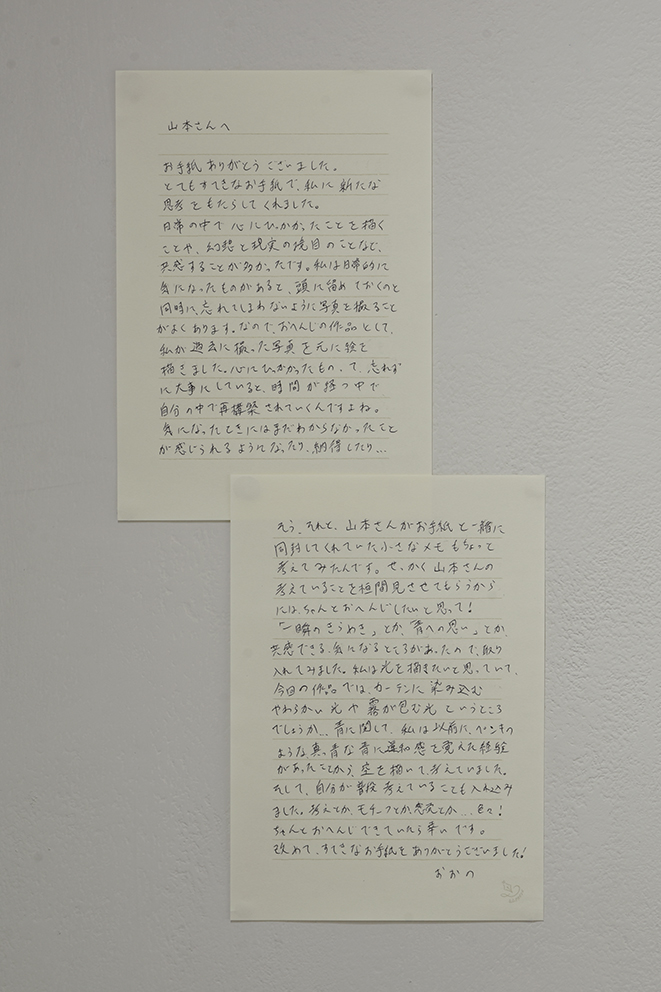 山本さんへ
お手紙ありがとうございました。
とてもすてきなお手紙で、私に新たな
思考をもたらしてくれました。
日常の中で心にひっかかったことを描く
ことや、幻想と現実の境目のことなど、
共感することが多かったです。私は日常的に
気になったものがあると、頭に留めておくのと
同時に、忘れてしまわないように写真を撮ること
がよくあります。なので、おへんじの作品として、
私が過去に撮った写真を元に絵を
描きました。心にひっかかったもの、って、忘れず
に大事にしていると、時間が経つ中で
自分の中で再構築されていくんですよね。
気になったときにはまだわからなかったこと
が感じられるようになったり、納得したり…
そう、それと、山本さんがお手紙と一緒に
同封してくれていた小さなメモもちょっと
考えてみたんです。せっかく山本さんの
考えていることを垣間見させてもらうから
には、ちゃんとおへんじしたいと思って！
「一瞬のきらめき」とか、「青への思い」とか、
共感できる、気になるところがあったので、取り
入れてみました。私は光を描きたいと思っていて、
今回の作品では、カーテンに染み込む
やわらかい光や霧が包む光というところ
でしょうか…青に関して、私は以前に、ペンキの
ような真っ青な青に違和感を覚えた経験
があったことから、空を描いて、考えていました。
そして、自分が普段考えていることも入れ込み
ました。考えとか、モチーフとか、感覚とか…色々！
ちゃんとおへんじできていたら幸いです。
改めて、すてきなお手紙をありがとうございました！
おおの